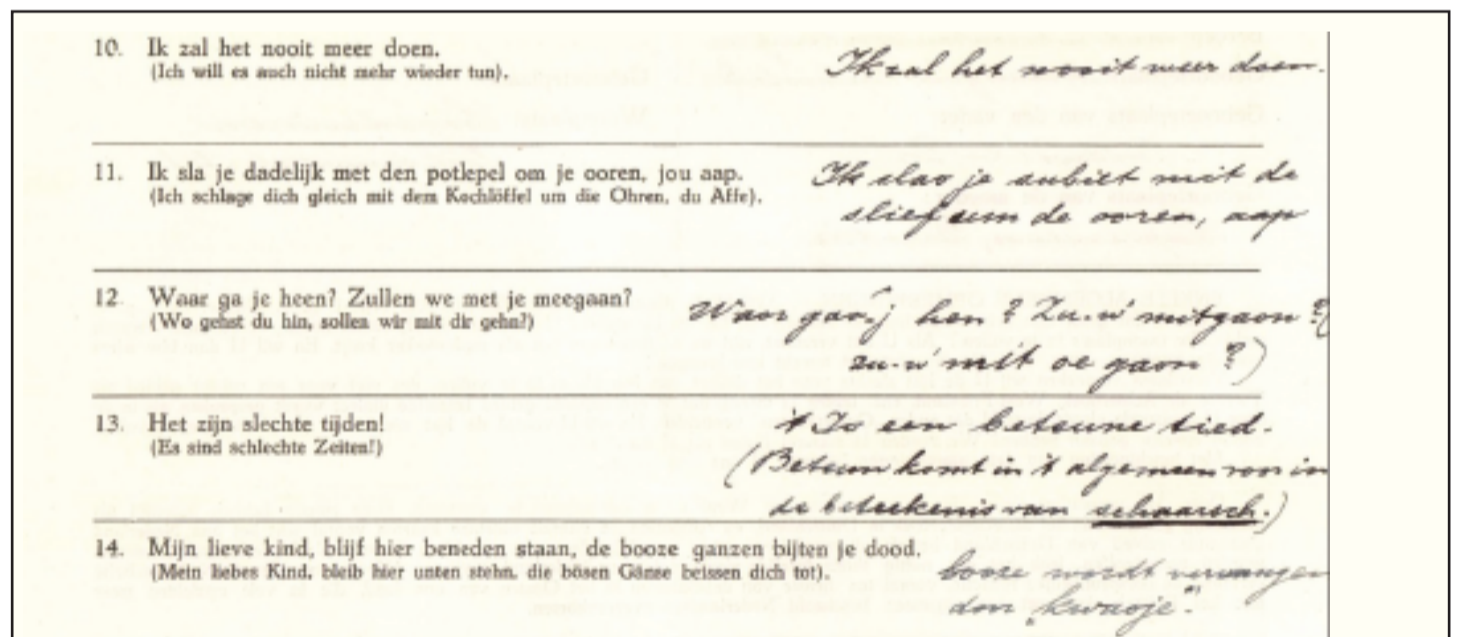 10. Ik zal het nooit meer doen.
(Ich will es auch nicht mehr wieder tun).
Ik zal het nooit meer doen.
11. Ik sla je dadelijk met den potlepel om je ooren, jou aap.
(Ich schlage dich gleich mit dem Kochlöffel um die Ohren, du Affe).
Ik slao je subiet mit de
slief um de ooren, aap
12 Waar ga je heen? Zullen we met je meegaan?
(Wo gehst du hin, sollen wir mit dir gehn?)
Waor gao-j hen? Zu-w mitgaon?(
zu-w mit oe gaon?)
13. Het zijn slechte tijden!
(Es sind schlechte Zeiten!)
't Is een beteune tied.
(Beteun komt in 't algemeen voor in
de beteekenis van schaarsch.)
14. Mijn lieve kind, blijf hier beneden staan, de booze ganzen bijten je dood.
(Mein liebes Kind, bleib hier unten stehn, die bösen Gänse beissen dich tot).
booze wordt vervangen
door „kwaoje".